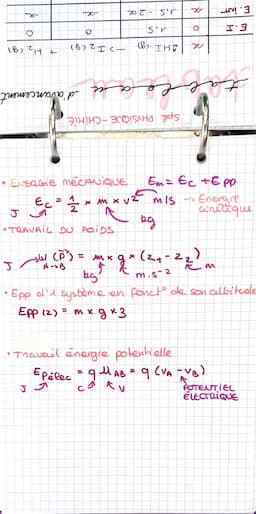 E. int n n,s - 2x n n
E.I 0 n,s 0 0
n 2HI (g) -> I2 (g) + H2 (g)
tableau d'avancement
SPÉ PHYSIQUE - CHIMIE
• ENERGIE MÉCANIQUE Em = Ec + Epp
Ec = 1/2 × m × v² m/s → Énergie cinétique
J kg
• TRAVAIL DU POIDS
J W (P) = m × g × (z1 - z2)
A→B kg m.s-2 m
• Epp d'1 système en fonct° de son altitude
Epp (z) = m × g × z
• Travail énergie potentielle
Epélec = q UAB = q (VA - VB)
J C V POTENTIEL ÉLECTRIQUE